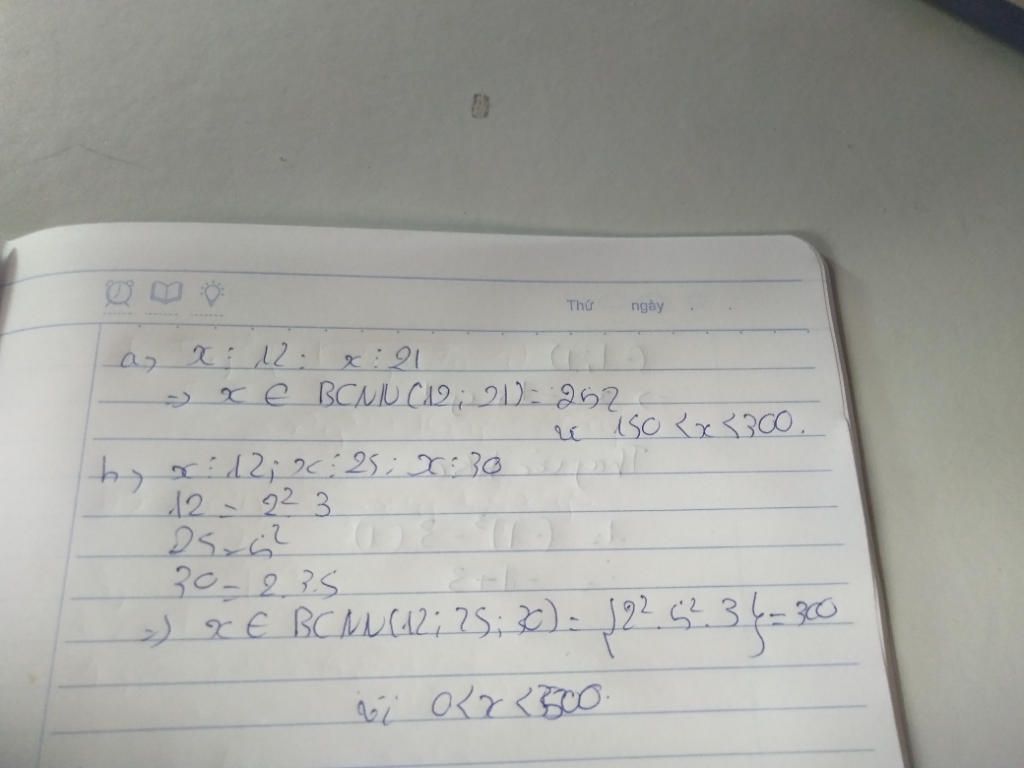 Thứ ngày . .
a, x ⋮ 12 ; x ⋮ 21
=> x ∈ BCNN(12; 21) = 252
150 < x < 300.
b, x ⋮ 12; x ⋮ 25; x ⋮ 30
12 = 2² 3
25 = 5²
30 = 2.3.5
=> x ∈ BCNN(12; 25; 30) = {2².5².3} = 300
vì 0 < x <